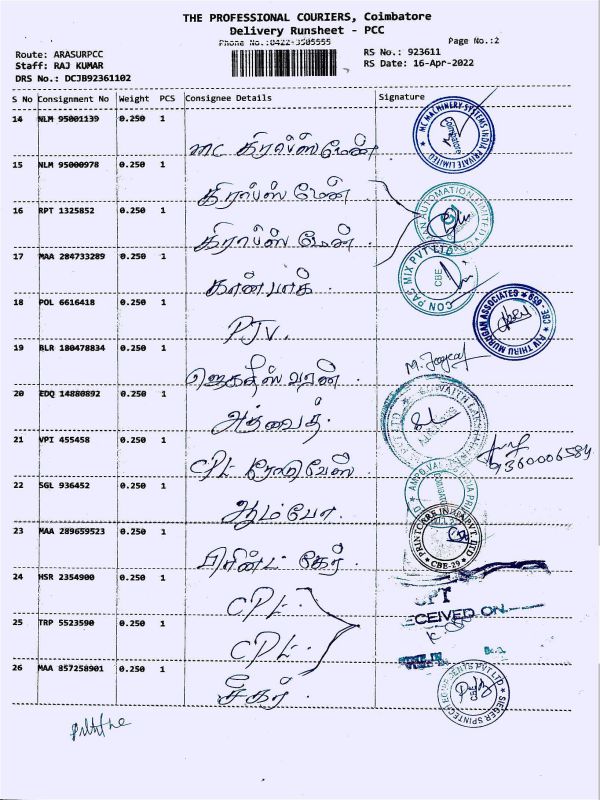 THE PROFESSIONAL COURIERS, Coimbatore
Delivery Runsheet - PCC
Phone No.:0422-3505555
Page No.:2
Route: ARASURPCC
Staff: RAJ KUMAR
DRS No.: DCJB92361102
RS No.: 923611
RS Date: 16-Apr-2022
S No Consignment No Weight PCS Consignee Details Signature
14 NLM 95001139 0.250 1
MC கிராப்ஸ்மேன்
15 NLM 95000978 0.250 1
கிராப்ஸ் மேன்
16 RPT 1325852 0.250 1
கிராப்ஸ் மேன்
17 MAA 284733289 0.250 1
கான்பாக்
18 POL 6616418 0.250 1
PJV.
19 BLR 180478834 0.250 1
ஜெகதீஸ்வரன்
20 EDQ 14880892 0.250 1
அத்வைத்
21 VPI 455458 0.250 1
CPL
9360006584
22 SGL 936452 0.250 1
ஆம்போ
23 MAA 289659523 0.250 1
பிரிண்ட் கேர்
24 HSR 2354900 0.250 1
CPL.
25 TRP 5523590 0.250 1
CPL.
26 MAA 857258901 0.250 1
MC MACHINERY SYSTEMS INDIA PRIVATE LIMITED
Coimbatore
AUTOMATION LIMITED
CON PAC MIX PVT LTD
CBE
PJV THIRU MURUGAN ASSOCIATES
PRINTCARE INDIA PVT. LTD
CBE-29
CEIVED ON
SIEGER SPINTECH EQUIPMENTS PVT LTD
CBE